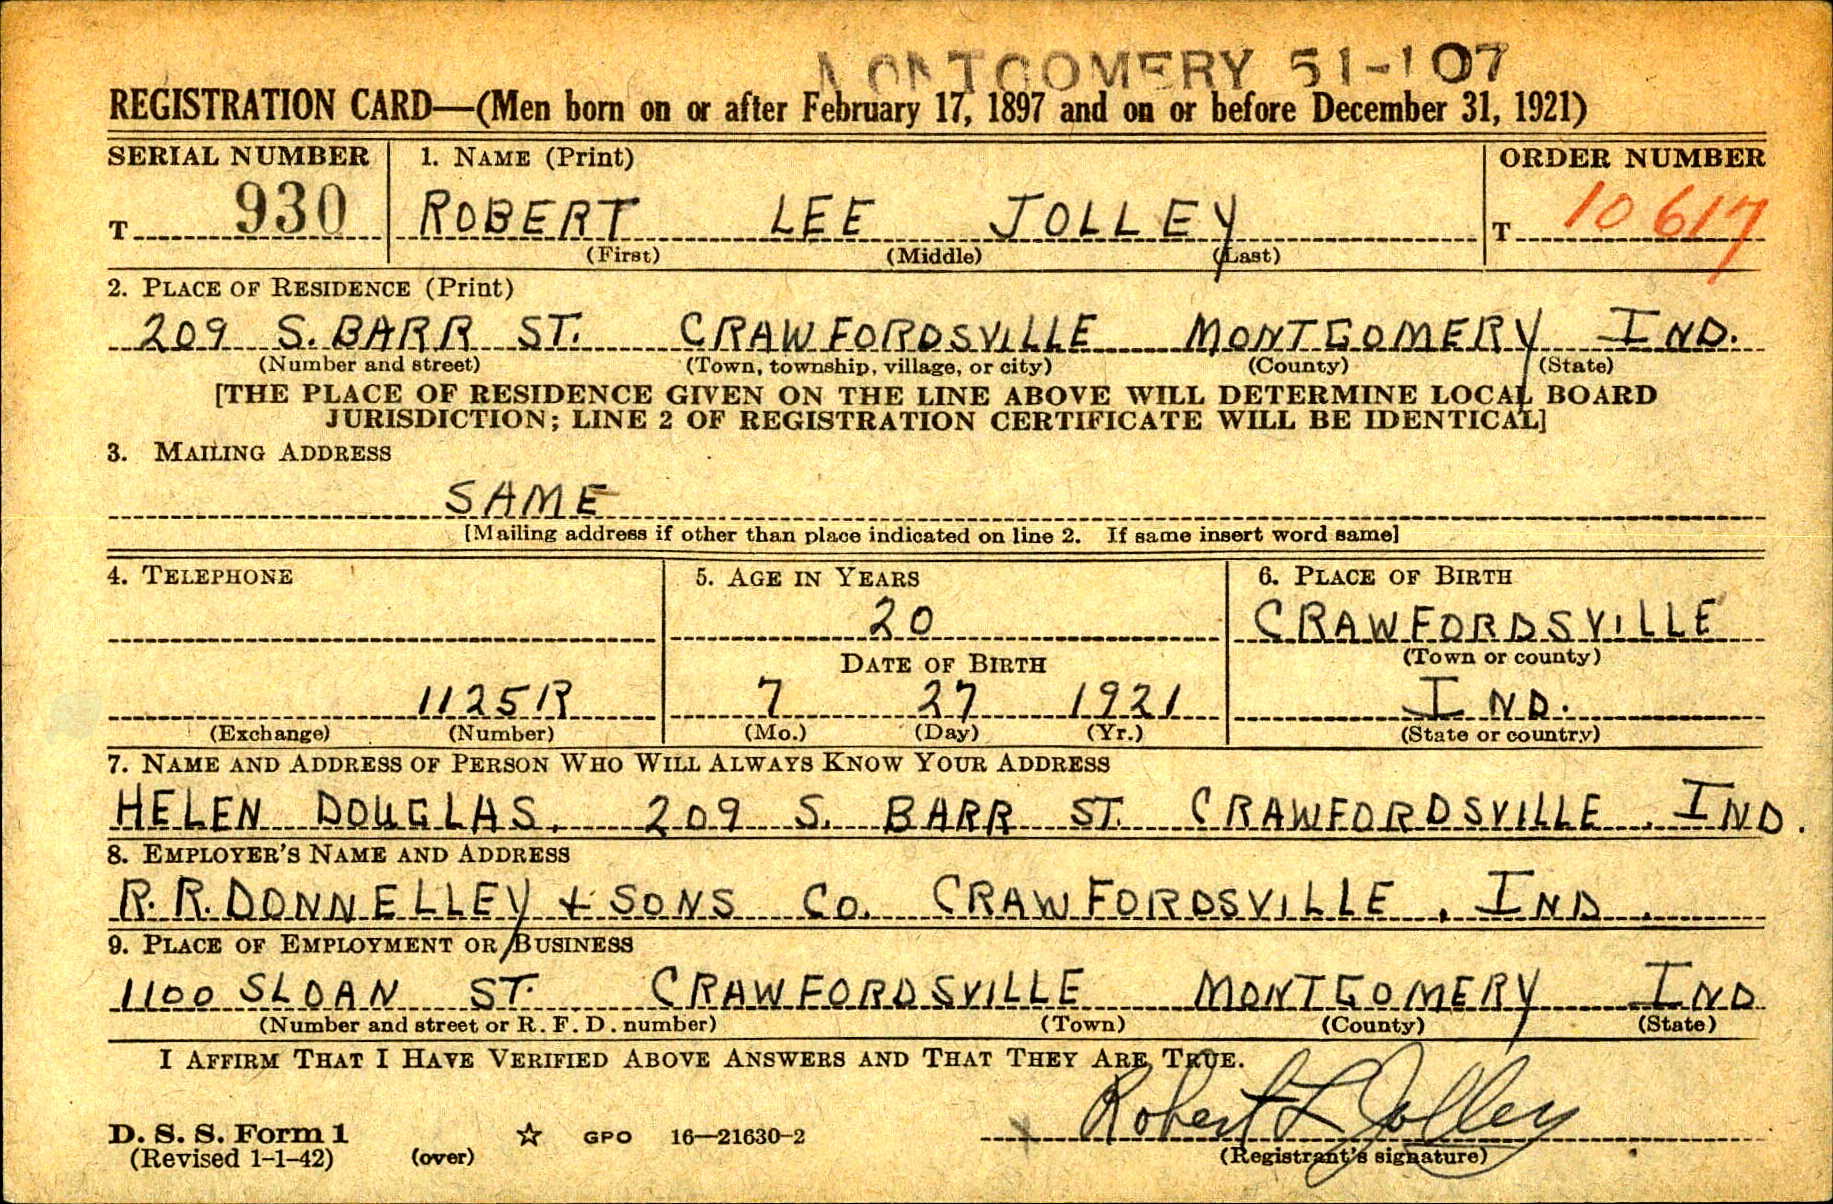 MONTGOMERY 51-107
REGISTRATION CARD—(Men born on or after February 17, 1897 and on or before December 31, 1921)
SERIAL NUMBER 1. NAME (Print) ORDER NUMBER
T 930 ROBERT LEE JOLLEY T 10617
(First) (Middle) (Last)
2. PLACE OF RESIDENCE (Print)
209 S. BARR ST. CRAWFORDSVILLE MONTGOMERY IND.
(Number and street) (Town, township, village, or city) (County) (State)
[THE PLACE OF RESIDENCE GIVEN ON THE LINE ABOVE WILL DETERMINE LOCAL BOARD
JURISDICTION; LINE 2 OF REGISTRATION CERTIFICATE WILL BE IDENTICAL]
3. MAILING ADDRESS
SAME
[Mailing address if other than place indicated on line 2. If same insert word same]
4. TELEPHONE 5. AGE IN YEARS 6. PLACE OF BIRTH
20 CRAWFORDSVILLE
DATE OF BIRTH (Town or county)
1125R 7 27 1921 IND.
(Exchange) (Number) (Mo.) (Day) (Yr.) (State or country)
7. NAME AND ADDRESS OF PERSON WHO WILL ALWAYS KNOW YOUR ADDRESS
HELEN DOUGLAS, 209 S. BARR ST. CRAWFORDSVILLE, IND.
8. EMPLOYER'S NAME AND ADDRESS
R.R. DONNELLEY + SONS Co. CRAWFORDSVILLE, IND.
9. PLACE OF EMPLOYMENT OR BUSINESS
1100 SLOAN ST. CRAWFORDSVILLE MONTGOMERY IND
(Number and street or R. F. D. number) (Town) (County) (State)
I AFFIRM THAT I HAVE VERIFIED ABOVE ANSWERS AND THAT THEY ARE TRUE.
Robert L Jolley
D. S. S. Form 1 ☆ GPO 16—21630-2
(Revised 1-1-42) (over) (Registrant's signature)